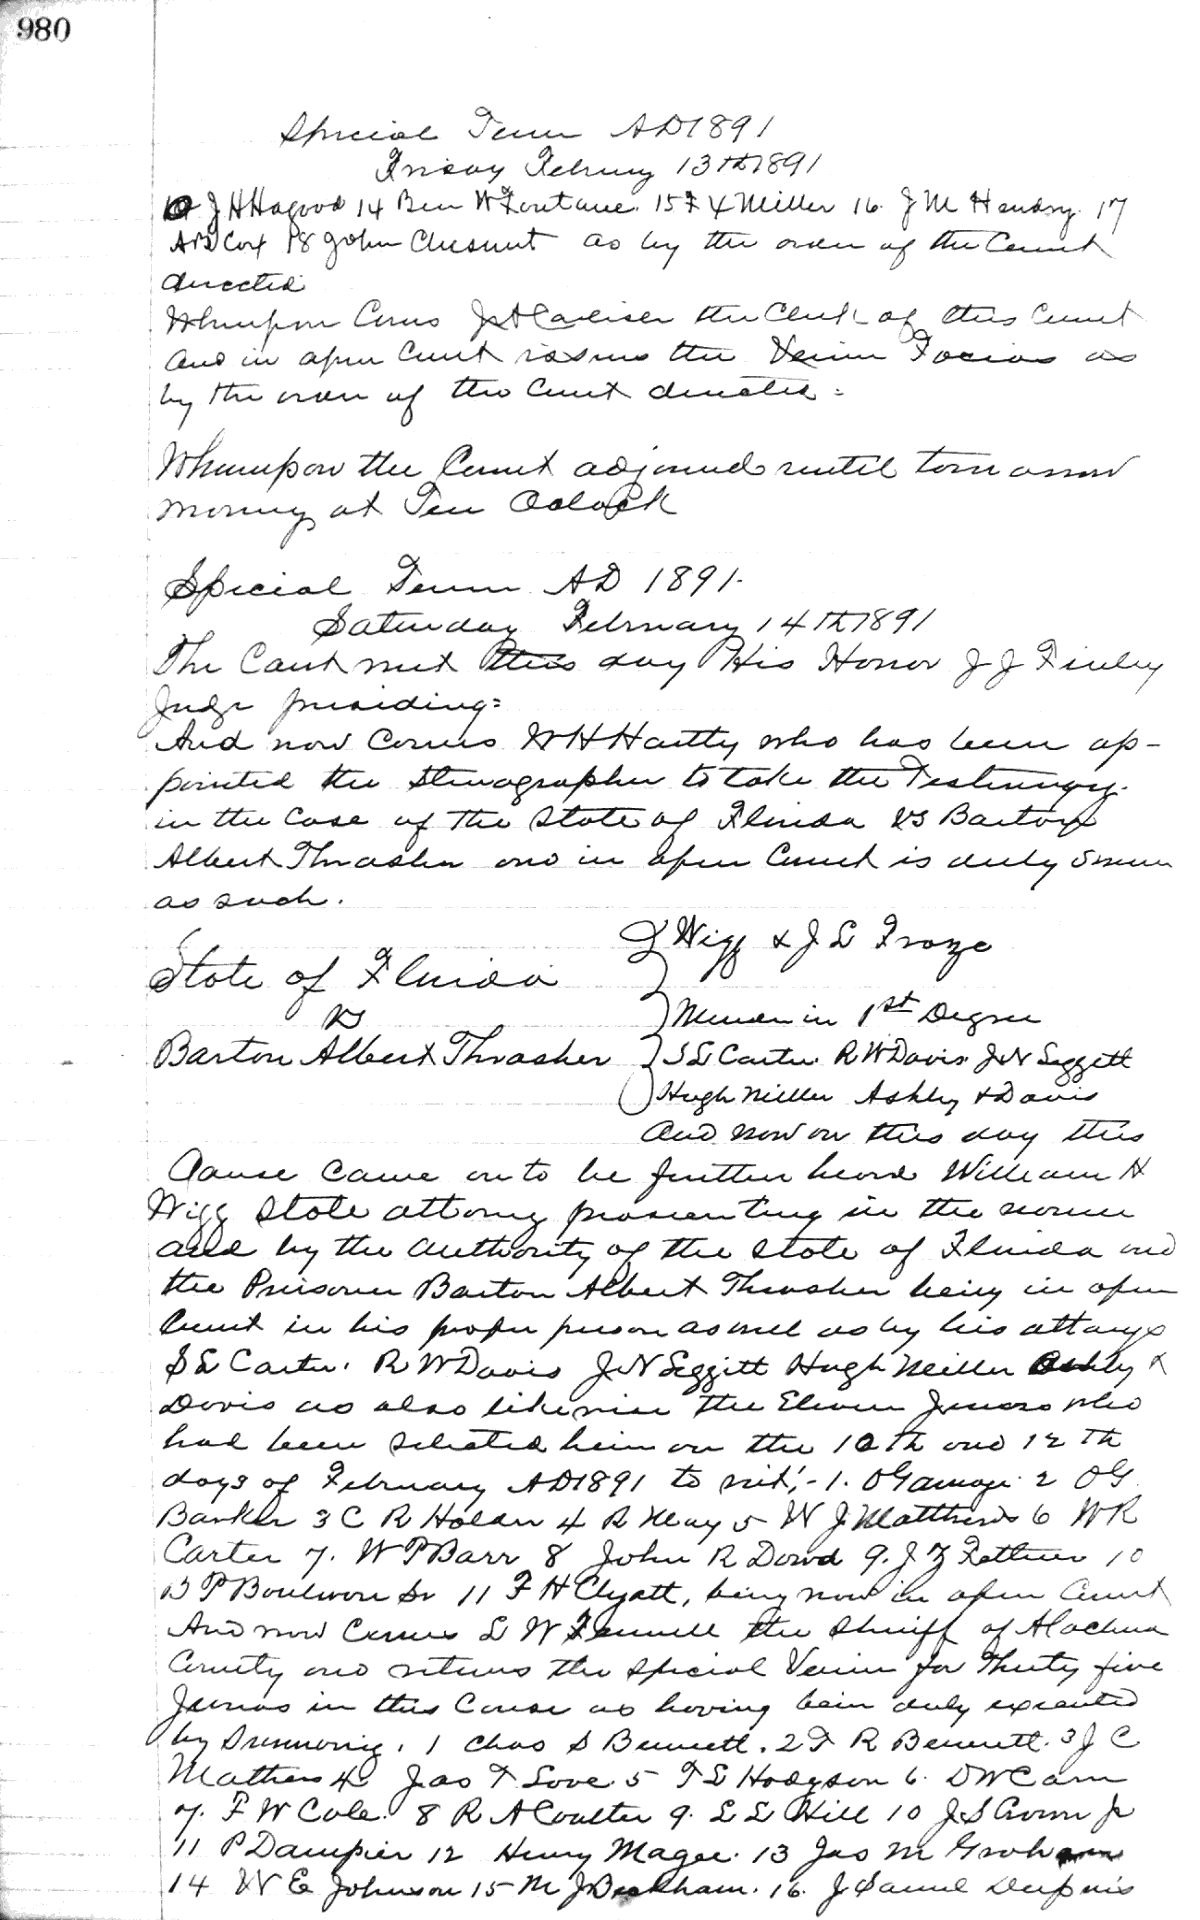 980
Special Term AD 1891
Friday February 13th 1891
J H Hagood 14 Ben W Fontane. 15 F Y Miller 16. J M Hendry. 17
Cox 18 John Chesnut as by the order of the Court
directed
Whereupon Comes J A Carlisle the Clerk of this Court
and in open Court issues the Venire Facias as
by the order of the Court directed =
Whereupon the Court adjourned until tomorrow
morning at Ten Oclock
Special Term AD 1891.
Saturday February 14th 1891
The Court met this day His Honor J J Finley
Judge presiding =
And now Comes W H Hartly who has been ap-
pointed the Stenographer to take the Testimony.
in the Case of The State of Florida vs Barton
Albert Thrasher and in open Court is duly sworn
as such.
Wigg & J L
State of Florida
vs
Murder in 1st Degree
Barton Albert Thrasher
S L Carter. R W Davis J N Leggett
Hugh Miller Ashby & Davis
And now on this day this
Cause came on to be further heard William H
Wigg State attorny prosecuting in the name
and by the authority of the State of Florida and
the Prisoner Barton Albert Thrasher being in open
Court in his proper person as well as by his attorneys
S L Carter. R W Davis J N Leggitt Hugh Miller Ashby &
Davis as also likewise the Eleven Jurors who
had been selected herein on the and 12th
days of February AD 1891 to wit; - 1. O Gamage. 2 O G
Barker 3 C R Holder 4 R May 5 W J Matthews 6 W R
Carter 7. W P Barr 8 John R Dowd 9. J Z Fettner 10
B P Boulware Sr 11 F H Clyatt, being now in open Court
And now Comes L W Fennell the Sheriff of Alachua
County and returns the special Venire for Thirty five
Jurors in this Cause as having been duly executed
by Summoning. 1 Chas S Bennett. 2 T R Bennett. 3 J C
Mathers 4 Jas T Love. 5 T L Hodgson 6. D W Carn
7. F W Cole. 8 R A Coulter 9. L L Hill 10 J S Crown Jr
11 P Dampier 12 Henry Magee. 13 Jas M Graham
14 W E Johnson 15 M J Beckham. 16. J Samuel Dupuis